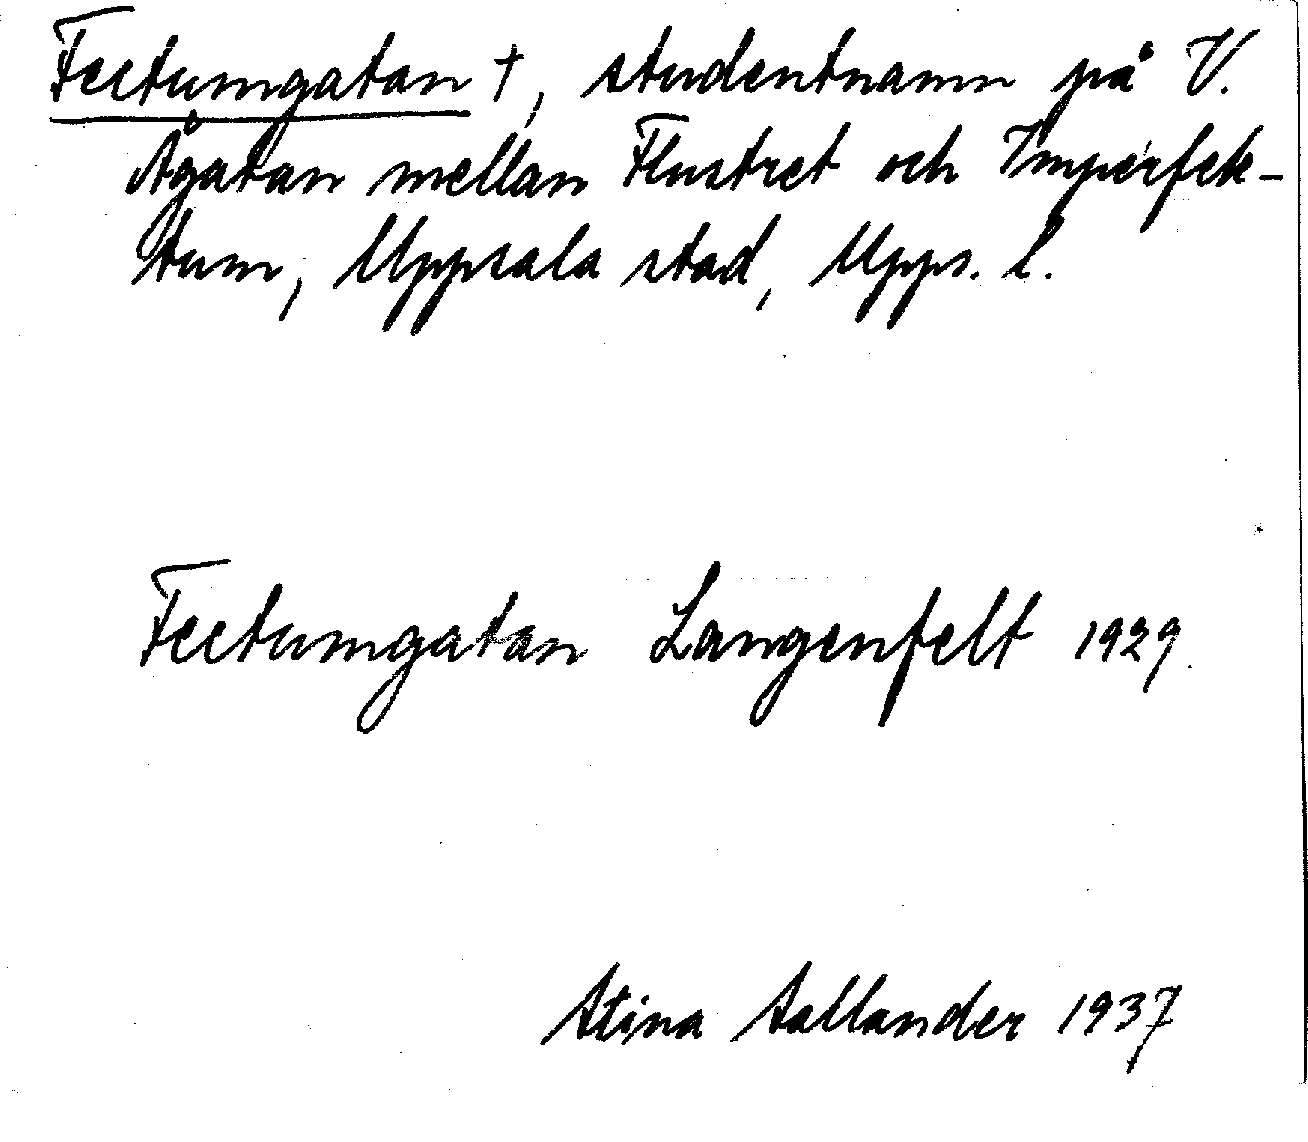 Fectumgatan †, studentnamn på V.
Ågatan mellan Flustret och Imperfek-
tum, Uppsala stad, Upps. l.
Fectumgatan Langenfelt 1929.
Stina Sallander 1937